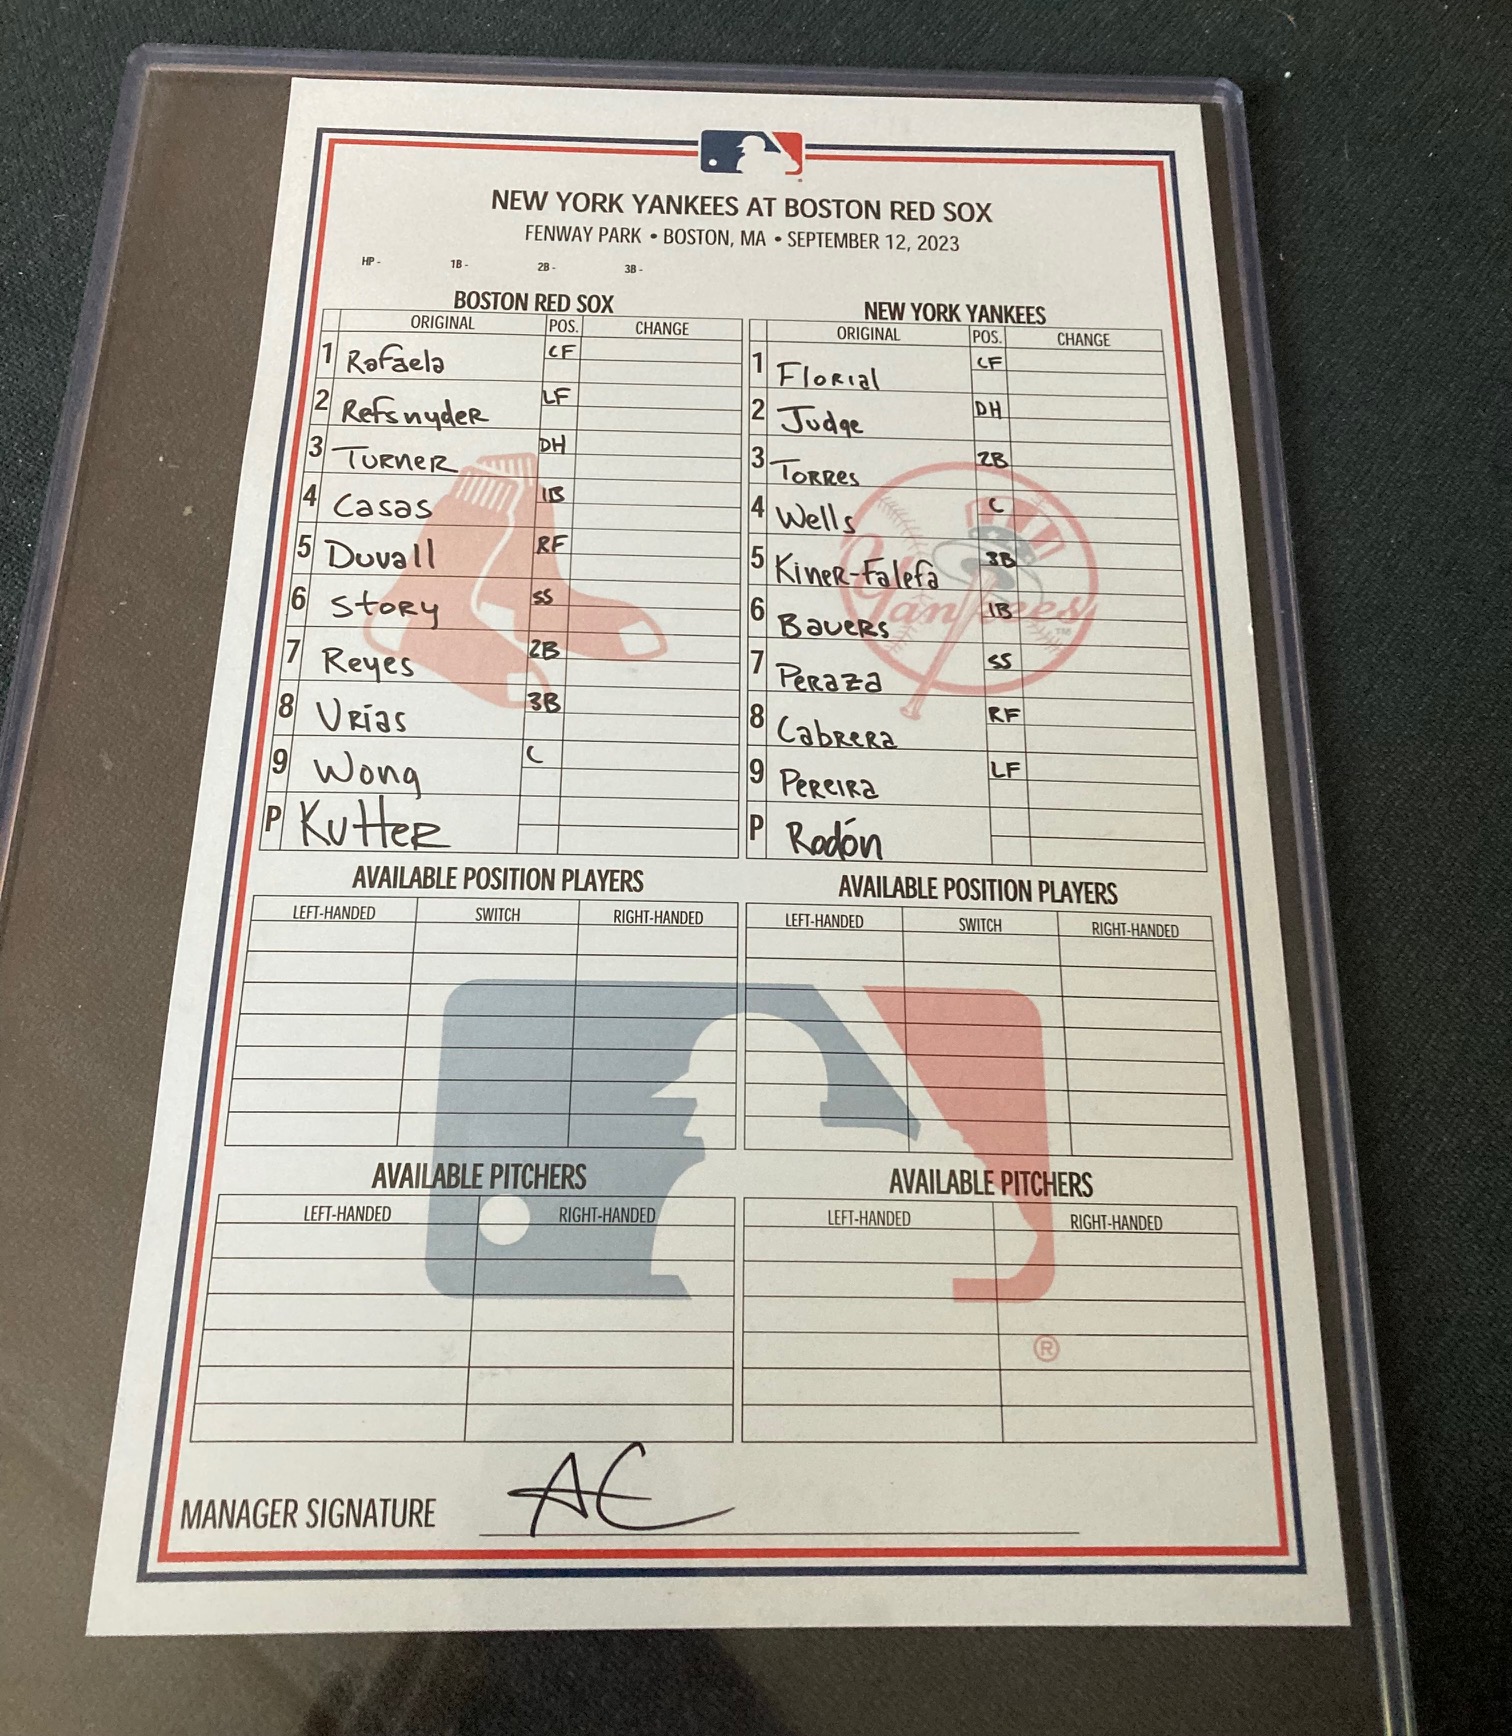 NEW YORK YANKEES AT BOSTON RED SOX
FENWAY PARK • BOSTON, MA • SEPTEMBER 12, 2023
HP - 1B - 2B - 3B -
BOSTON RED SOX
ORIGINAL POS. CHANGE
1 Rafaela CF
2 Refsnyder LF
3 Turner DH
4 Casas 1B
5 Duvall RF
6 Story SS
7 Reyes 2B
8 Urías 3B
9 Wong C
P Kutter
NEW YORK YANKEES
ORIGINAL POS. CHANGE
1 Florial CF
2 Judge DH
3 Torres 2B
4 Wells C
5 Kiner-Falefa 3B
6 Bauers 1B
7 Peraza SS
8 Cabrera RF
9 Pereira LF
P Rodón
Yankees
TM
AVAILABLE POSITION PLAYERS
LEFT-HANDED SWITCH RIGHT-HANDED
AVAILABLE POSITION PLAYERS
LEFT-HANDED SWITCH RIGHT-HANDED
AVAILABLE PITCHERS
LEFT-HANDED RIGHT-HANDED
AVAILABLE PITCHERS
LEFT-HANDED RIGHT-HANDED
®
MANAGER SIGNATURE AC